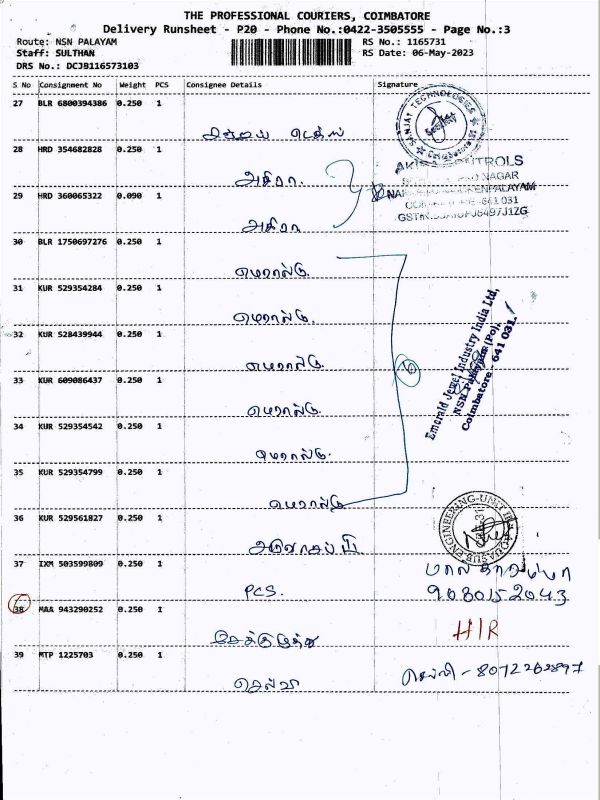 THE PROFESSIONAL COURIERS, COIMBATORE
Delivery Runsheet - P20 - Phone No.:0422-3505555 - Page No.:3
Route: NSN PALAYAM RS No.: 1165731
Staff: SULTHAN RS Date: 06-May-2023
DRS No.: DCJB116573103
S No Consignment No Weight PCS Consignee Details Signature
27 BLR 6800394386 0.250 1
SANJAY TECHNOLOGIES
Coimbatore
28 HRD 354682828 0.250 1
அகிரா.
NAGAR
641 031
29 HRD 360065322 0.090 1
அகிரா
30 BLR 1750697276 0.250 1
எமரால்டு.
31 KUR 529354284 0.250 1
எமரால்டு.
32 KUR 528439944 0.250 1
எமரால்டு.
33 KUR 609086437 0.250 1
எமரால்டு.
6
Emerald Jewel Industry India Ltd,
NSN Palayam (Po),
Coimbatore - 641 031.
34 KUR 529354542 0.250 1
எமரால்டு.
35 KUR 529354799 0.250 1
எமரால்டு
36 KUR 529561827 0.250 1
AQUASUB ENGINEERING-UNIT II
37 IXM 503599809 0.250 1
PCS.
9080152043
38 MAA 943290252 0.250 1
H/R
39 MTP 1225703 0.250 1
செல்வி
செல்வி - 8072262897